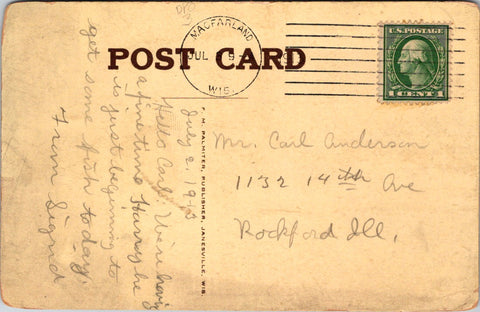 MACFARLAND
JUL 9
WIS.
POST CARD
U.S. POSTAGE
1 CENT 1
Mr. Carl Anderson
1132 14th Ave
Rockford Ill.
F. H. PALMITER, PUBLISHER, JANESVILLE, WIS.
July 2, 1913
Hello Carl: We're having
a fine time Harry he
is just beginning to
get some fish today.
From Sigurd